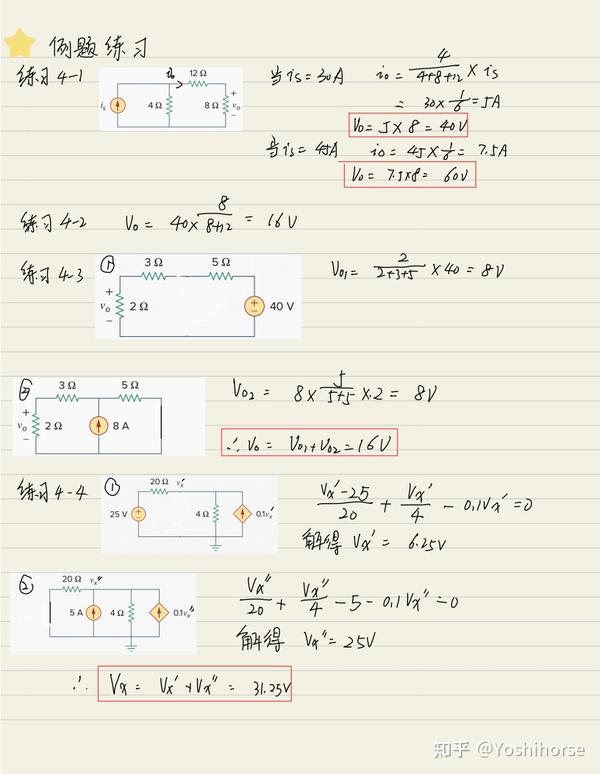 例题练习
练习4-1
i₀ 12 Ω
iₛ 4 Ω 8 Ω + v₀ −
当 iₛ = 30A i₀ = 4/(4+8+12) × iₛ
= 30 × 1/6 = 5A
V₀ = 5 × 8 = 40V
当 iₛ = 45A i₀ = 45 × 1/6 = 7.5A
V₀ = 7.5×8 = 60V
练习4-2 V₀ = 40 × 8/(8+12) = 16V
练习4-3 ①
3 Ω 5 Ω
+ v₀ − 2 Ω 40 V
V₀₁ = 2/(2+3+5) × 40 = 8V
②
3 Ω 5 Ω
+ v₀ − 2 Ω 8 A
V₀₂ = 8 × 5/(5+5) × 2 = 8V
∴ V₀ = V₀₁ + V₀₂ = 16V
练习4-4 ①
20 Ω vₓ'
25 V 4 Ω 0.1vₓ'
(Vₓ'-25)/20 + Vₓ'/4 − 0.1Vₓ' = 0
解得 Vₓ' = 6.25V
②
20 Ω vₓ''
5 A 4 Ω 0.1vₓ''
Vₓ''/20 + Vₓ''/4 − 5 − 0.1Vₓ'' = 0
解得 Vₓ'' = 25V
∴ Vₓ = Vₓ' + Vₓ'' = 31.25V
知乎 @Yoshihorse